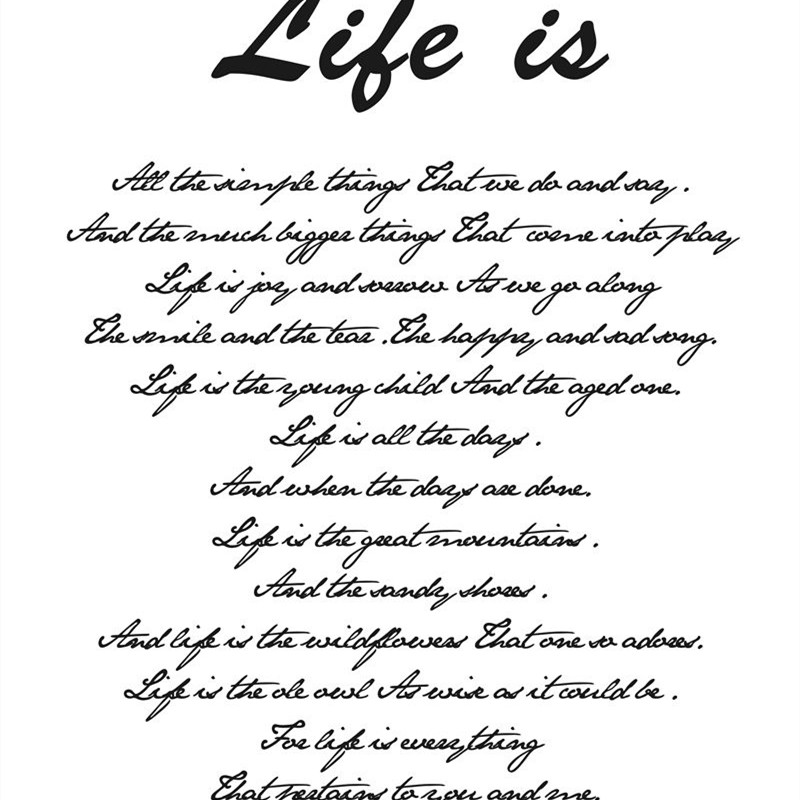 Life is
All the simple things That we do and say .
And the much bigger things That come into play
Life is joy and sorrow As we go along
The smile and the tear .The happy and sad song.
Life is the young child And the aged one.
Life is all the days .
And when the days are done.
Life is the great mountains .
And the sandy shores .
And life is the wildflowers That one so adores.
Life is the ole owl As wise as it could be .
For life is everything
That pertains to you and me.